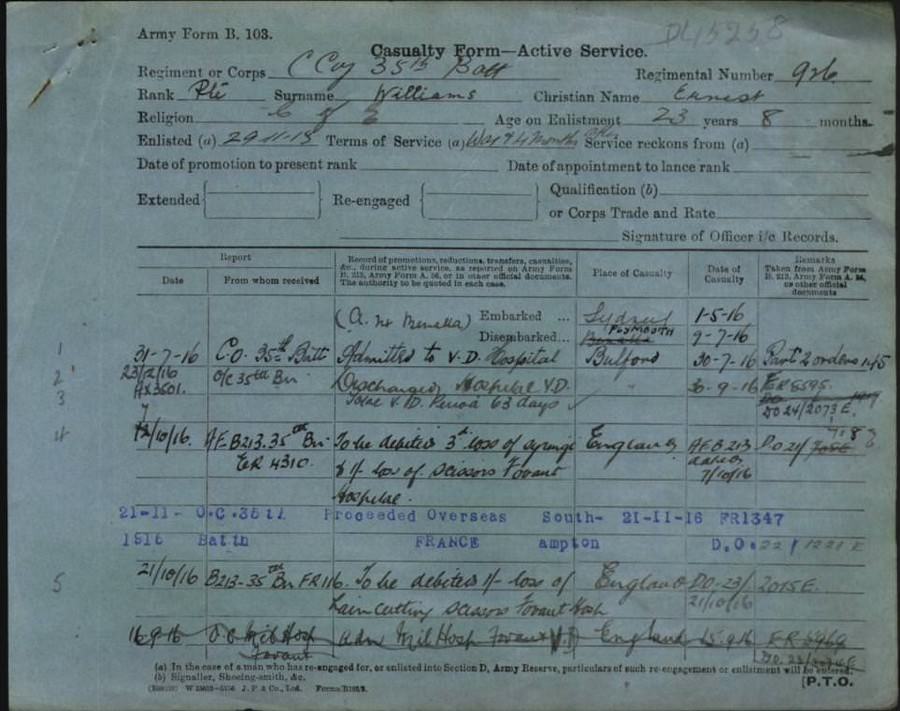 DL15258
Army Form B. 103.
Casualty Form—Active Service.
Regiment or Corps C Coy 35th Batt Regimental Number 926
Rank Pte Surname Williams Christian Name Ernest
Religion C of E Age on Enlistment 23 years 8 months.
Enlisted (a) 29-11-15 Terms of Service (a) War & 4 Months Service reckons from (a)
Date of promotion to present rank Date of appointment to lance rank
Extended Re-engaged Qualification (b)
or Corps Trade and Rate
Signature of Officer i/c Records.
Report Record of promotions, reductions, transfers, casualties, &c., during active service, as reported on Army Form B. 213, Army Form A. 36, or in other official documents. The authority to be quoted in each case. Place of Casualty Date of Casualty Remarks Taken from Army Form B. 213, Army Form A. 36, or other official documents
Date From whom received
(A. 14 Benalla) Embarked ... Sydney 1-5-16
Disembarked... PLYMOUTH 9-7-16
1 31-7-16 C.O. 35th Batt Admitted to V.D. Hospital Bulford 30-7-16 Part 2 orders 145
2 23/12/16 O/C 35th Bn Discharged Hospital V.D. " 30-9-16 ER 8595.
3 AX3501. Total V.D. Period 63 days DO 24/2073 E.
4 /10/16. AF B213. 35th Bn To be debited 3d loss of syringe England AF B 213 DO 21/
ER 4310. & 1/- loss of scissors Fovant dated 7/10/16
Hospital.
21-11- O.C. 35th Proceeded Overseas South- 21-11-16 FR1347
1916 Battn FRANCE ampton D.O. 22 / 1221 E
5 21/10/16 B213-35th Bn FR116. To be debited 1/- loss of England DO 23/ 2015 E.
Hair cutting scissors Fovant Hosp 21/10/16
16-9-16 O.C Mil Hosp Fovant adm Mil Hosp Fovant V.D England 15-9-16
(a) In the case of a man who has re-engaged for, or enlisted into Section D, Army Reserve, particulars of such re-engagement or enlistment will be entered.
(b) Signaller, Shoeing-smith, &c.
J. P. & Co., Ltd.
[P.T.O.